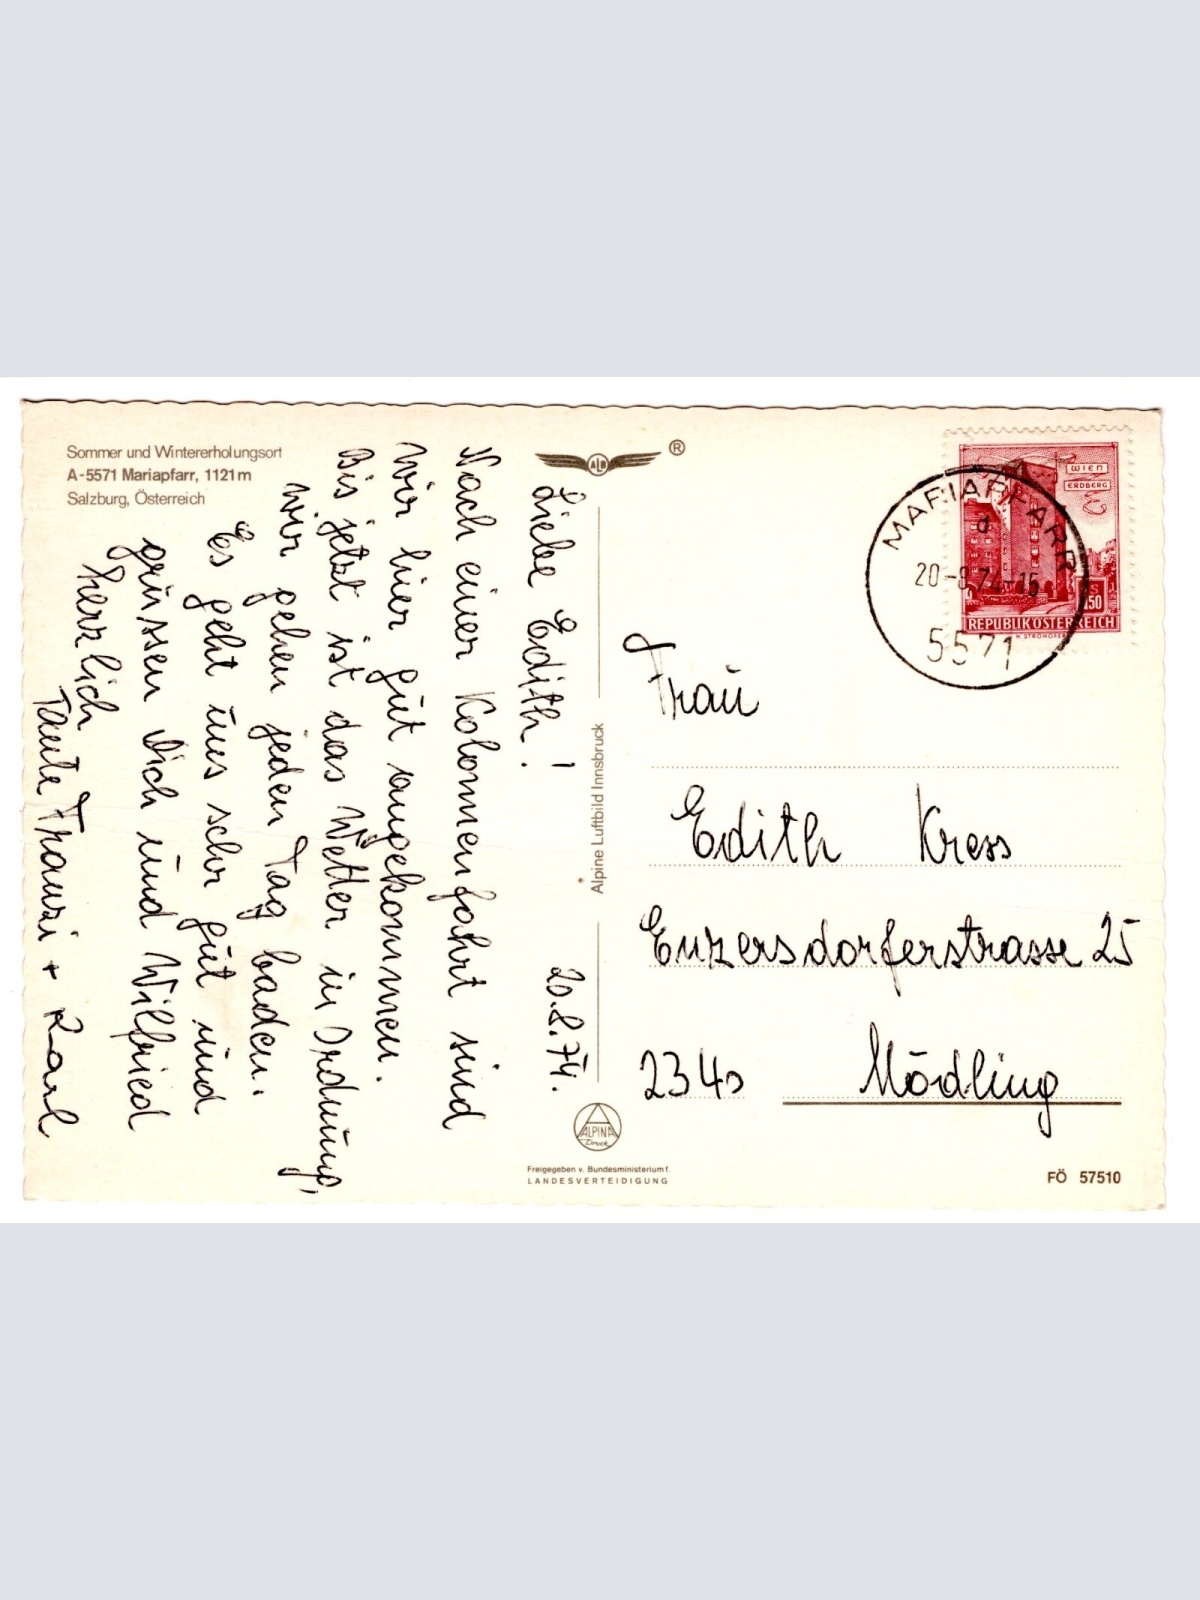 Sommer und Wintererholungsort
A-5571 Mariapfarr, 1121m
Salzburg, Österreich
ALB ®
Liebe Edith! 20.8.74.
Nach einer Kolonnenfahrt sind
wir hier gut angekommen.
Bis jetzt ist das Wetter in Ordnung,
wir gehen jeden Tag baden.
Es geht uns sehr gut und
grüssen Dich und Wilfried
herzlich
Tante Franzi + Karl
Alpine Luftbild Innsbruck
ALPINA
Druck
Freigegeben v. Bundesministerium f.
LANDESVERTEIDIGUNG
WIEN
ERDBERG
S
1.50
REPUBLIK ÖSTERREICH
H. STROHOFER
MARIAPFARR
d
20-8.74-15
5571
Frau
Edith Kress
Enzersdorferstrasse 25
2340 Mödling
FÖ 57510